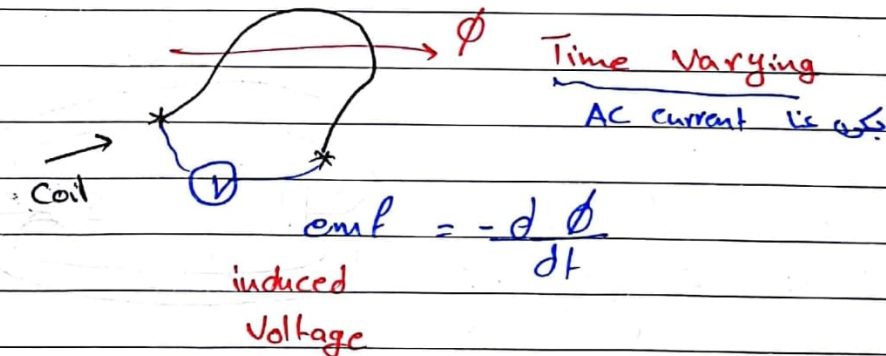 ϕ Time Varying
AC current بيكون عنا
Coil
V
emf = -dϕ/dt
induced
Voltage